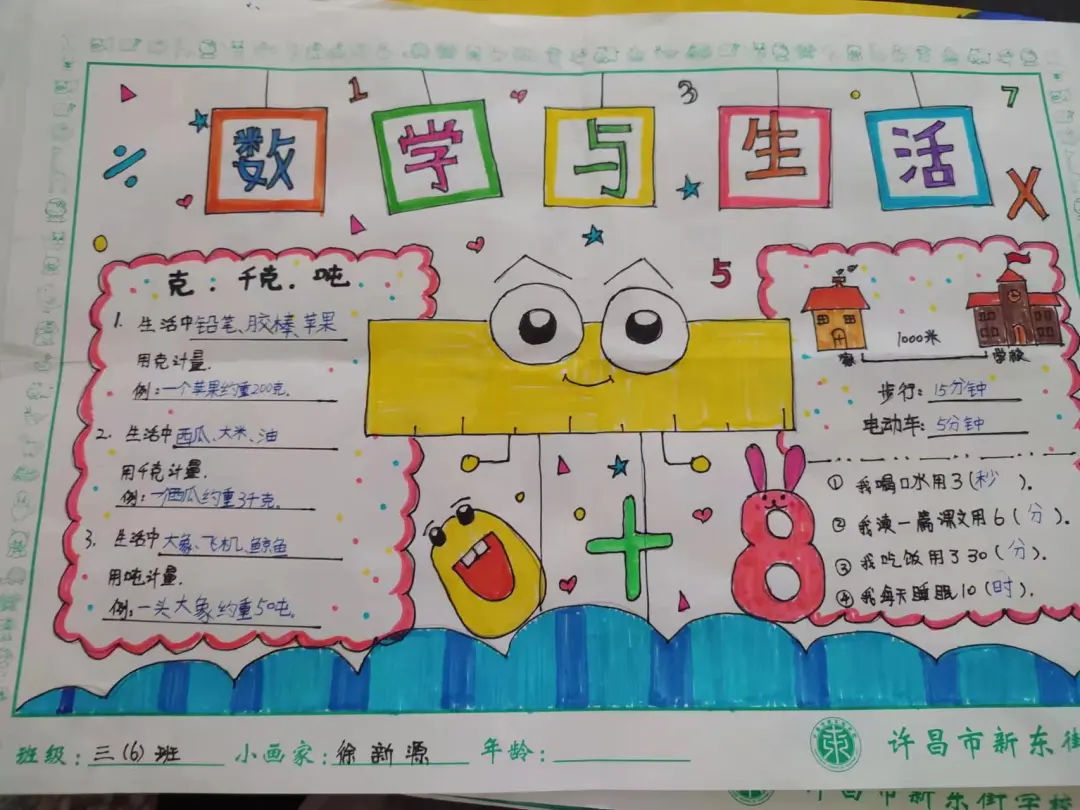 数学与生活
1
3
7
5
÷
X
克：千克.吨
1.生活中铅笔、胶棒、苹果
用克计量.
例：一个苹果约重200克.
2.生活中西瓜、大米、油
用千克计量.
例：一個瓜约重3千克.
3.生活中大象、飞机、鲸鱼
用吨计量.
例：一头大象约重50吨.
1000米
家
学校
步行：15分钟
电动车：5分钟
①我喝口水用3(秒).
②我读一篇课文用6(分).
③我吃饭用了30(分).
④我每天睡眠10(时).
0+8
班级：三(6)班 小画家：徐新源 年龄：
许昌市新东街
许昌市新东街学校